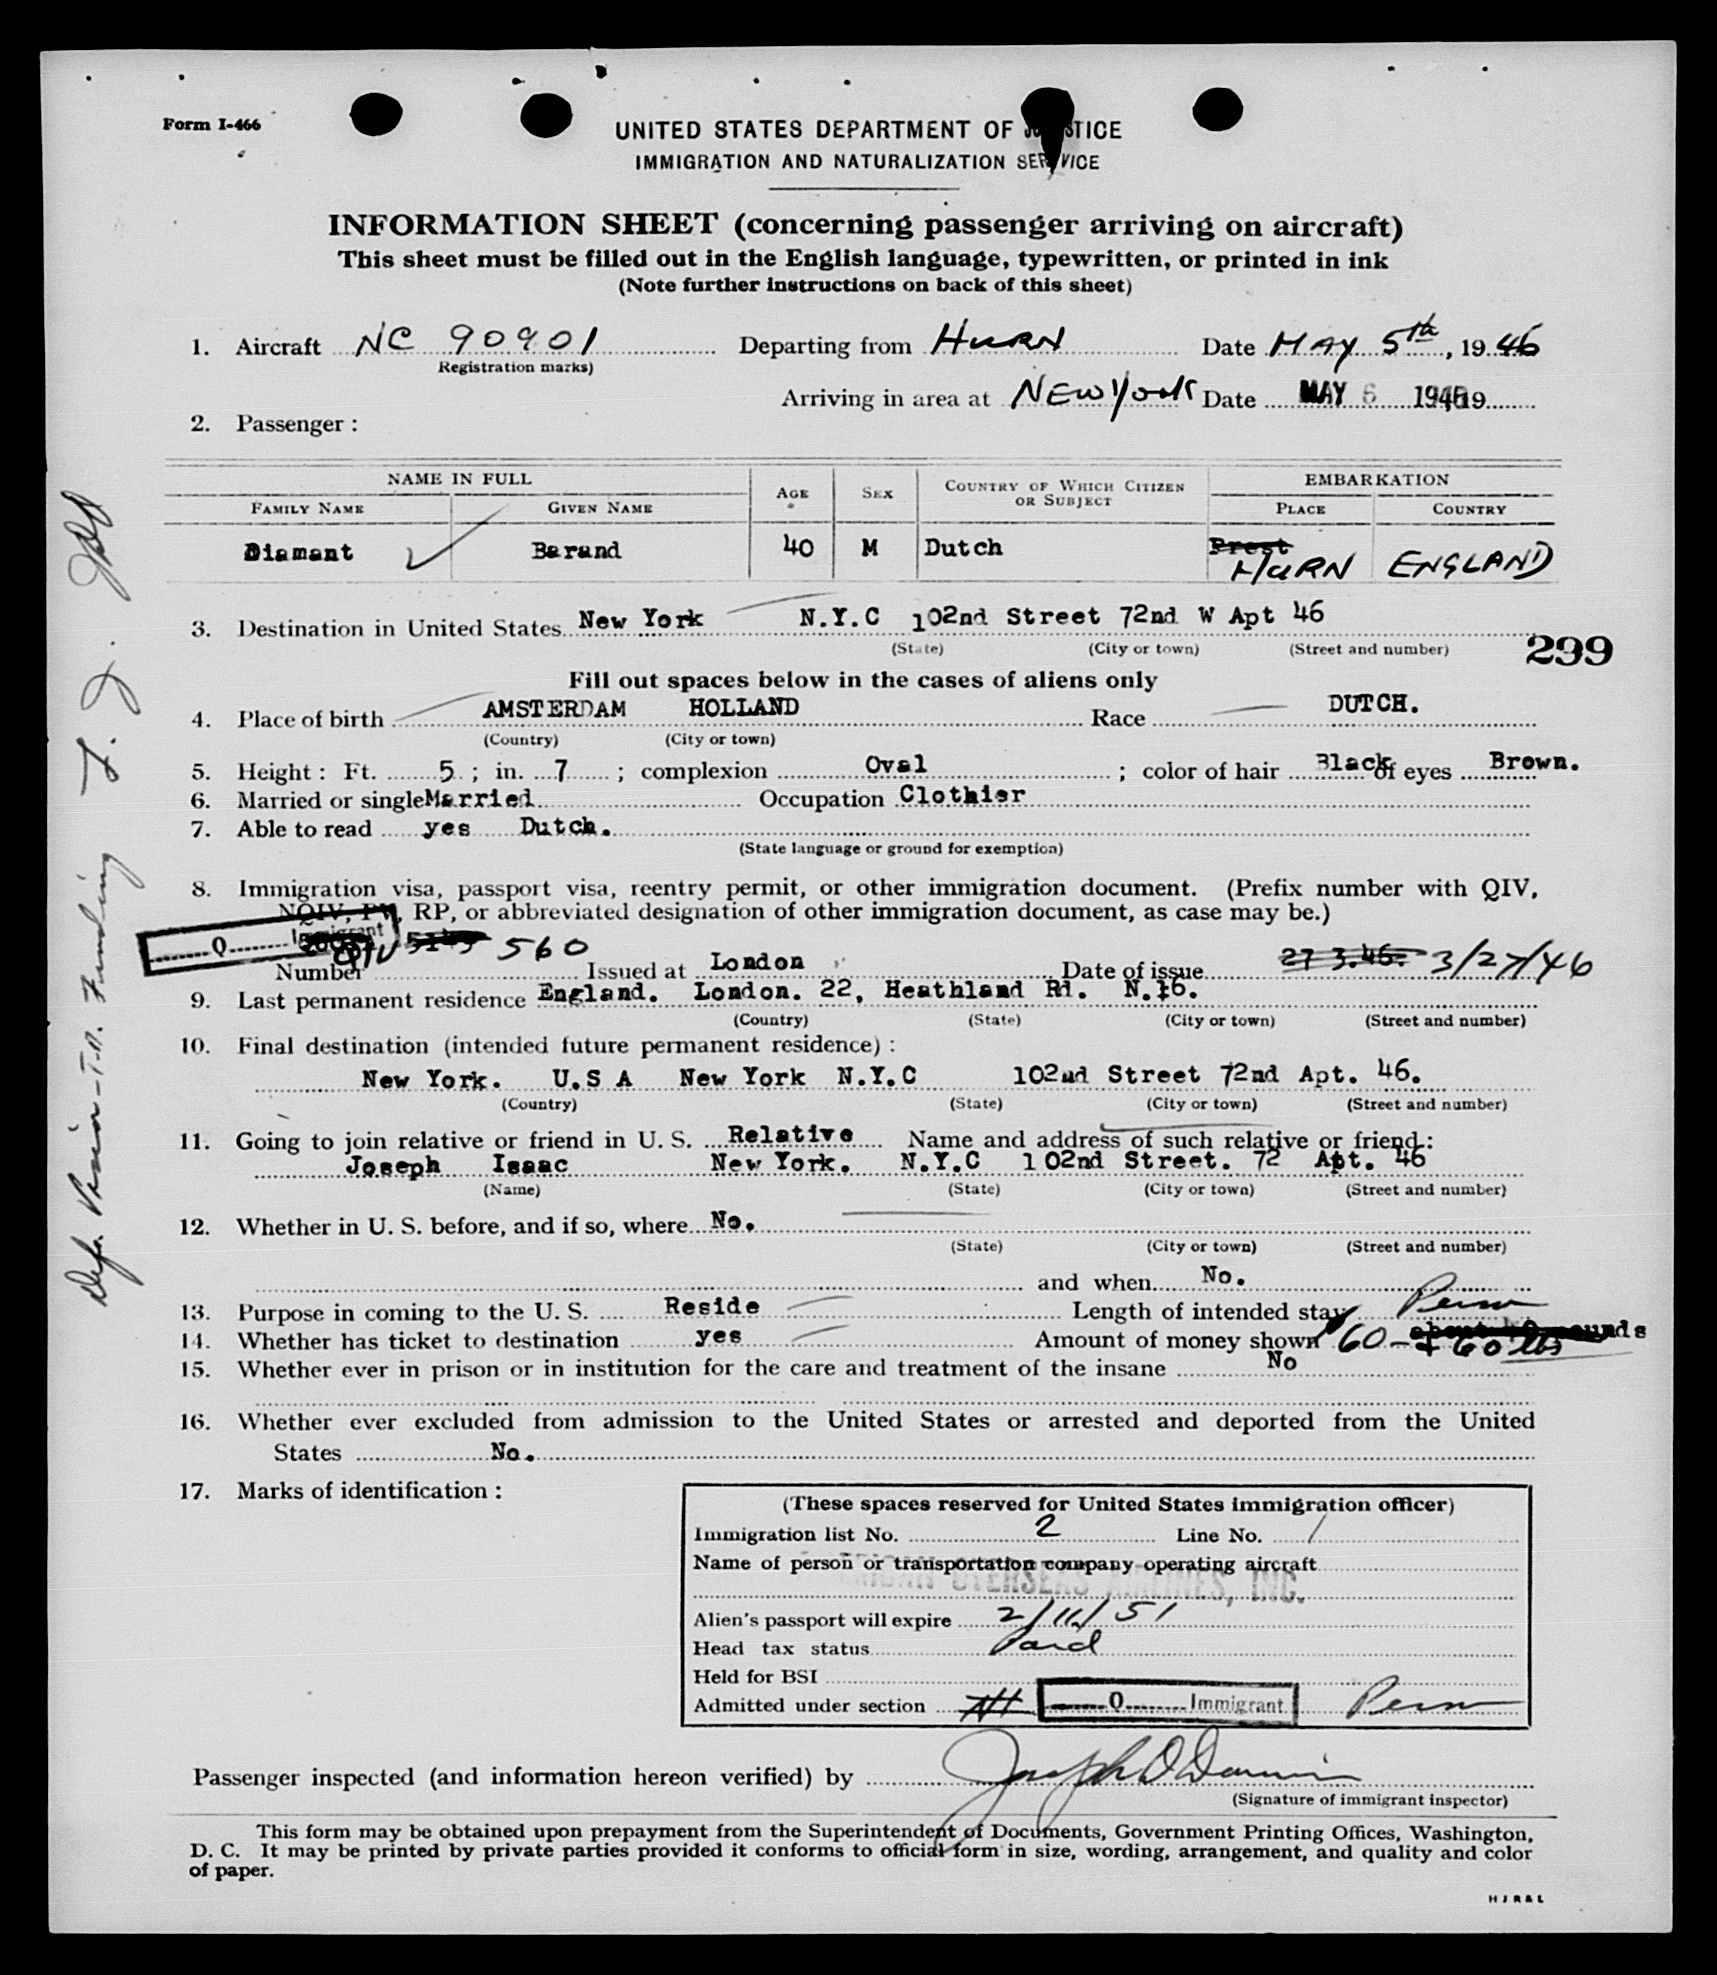 Form I-466
UNITED STATES DEPARTMENT OF JUSTICE
IMMIGRATION AND NATURALIZATION SERVICE
INFORMATION SHEET (concerning passenger arriving on aircraft)
This sheet must be filled out in the English language, typewritten, or printed in ink
(Note further instructions on back of this sheet)
1. Aircraft NC 90901 Departing from HURN Date MAY 5th, 1946
(Registration marks)
Arriving in area at NEW York Date MAY 6 1946 19
2. Passenger :
NAME IN FULL AGE SEX COUNTRY OF WHICH CITIZEN OR SUBJECT EMBARKATION
FAMILY NAME GIVEN NAME PLACE COUNTRY
Diamant Barand 40 M Dutch Prest HURN ENGLAND
3. Destination in United States New York N.Y.C 102nd Street 72nd W Apt 46
(State) (City or town) (Street and number)
299
Fill out spaces below in the cases of aliens only
4. Place of birth AMSTERDAM HOLLAND Race DUTCH.
(Country) (City or town)
5. Height : Ft. 5 ; in. 7 ; complexion Oval ; color of hair Black of eyes Brown.
6. Married or single Married Occupation Clothier
7. Able to read yes Dutch.
(State language or ground for exemption)
8. Immigration visa, passport visa, reentry permit, or other immigration document. (Prefix number with QIV,
NQIV, PV, RP, or abbreviated designation of other immigration document, as case may be.)
Q Immigrant
Number QIV 560 Issued at London Date of issue 27 3.46. 3/27/46
9. Last permanent residence England. London. 22, Heathland Rd. N.16.
(Country) (State) (City or town) (Street and number)
10. Final destination (intended future permanent residence) :
New York. U.S A New York N.Y.C 102nd Street 72nd Apt. 46.
(Country) (State) (City or town) (Street and number)
11. Going to join relative or friend in U. S. Relative Name and address of such relative or friend :
Joseph Isaac New York. N.Y.C 102nd Street. 72 Apt. 46
(Name) (State) (City or town) (Street and number)
12. Whether in U. S. before, and if so, where No.
(State) (City or town) (Street and number)
and when No.
13. Purpose in coming to the U. S. Reside Length of intended stay Perm
14. Whether has ticket to destination yes Amount of money shown 60 — about pounds
60 lbs
15. Whether ever in prison or in institution for the care and treatment of the insane No
16. Whether ever excluded from admission to the United States or arrested and deported from the United
States No.
17. Marks of identification :
(These spaces reserved for United States immigration officer)
Immigration list No. 2 Line No. 1
Name of person or transportation company operating aircraft
OVERSEAS AIRLINES, INC.
Alien's passport will expire 2/11/51
Head tax status Paid
Held for BSI
Admitted under section Q Immigrant Perm
Passenger inspected (and information hereon verified) by
(Signature of immigrant inspector)
This form may be obtained upon prepayment from the Superintendent of Documents, Government Printing Offices, Washington,
D. C. It may be printed by private parties provided it conforms to official form in size, wording, arrangement, and quality and color
of paper.
H J R & L